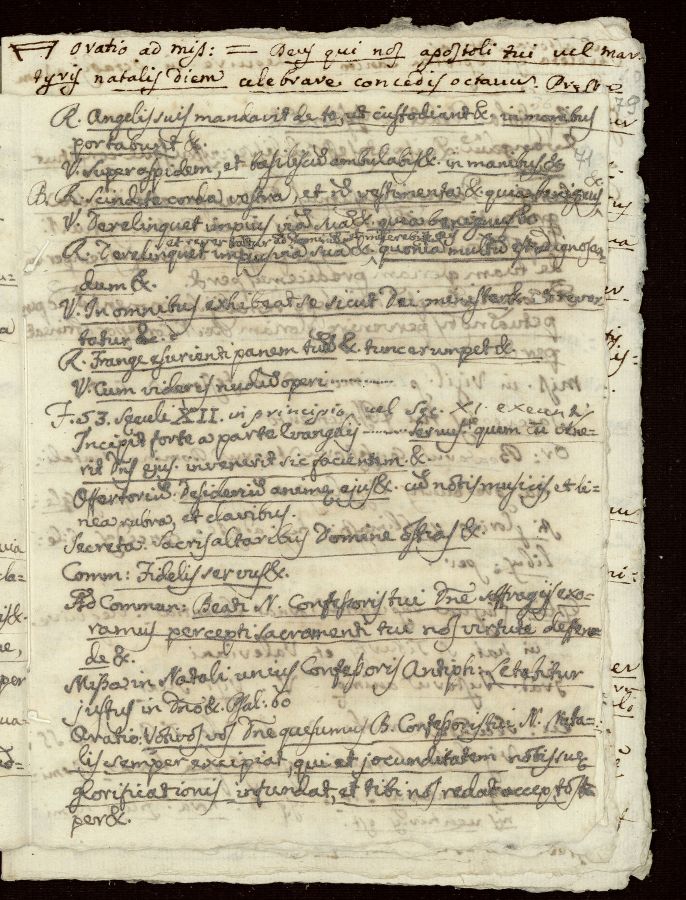 Oratio ad miss: = Deus qui nos apostoli tui vel mar=
tyris natalis diem celebrare concedis octavus.
79
R. Angelis suis mandavit de te, ut custodiant &. in manibus
portabunt &.
71
V. Super aspidem, et basiliscũ ambulabis &. in manibus &.
R. Scindite corda vostra, et nõ vestimenta &. quia benignus &
V. Derelinquet impius viã suã & quia benignus
et revertatur ad Dominũ et miserebitur
R. Derelinquet impius viã suã & quonia multus est ad ignoscen
dum &.
V. In omnibus exhibeat se sicut Dei ministerũ rever
tatur &.
R. Frange esurienti panem tuũ &. tunc erumpet &.
V. Cum videris nudũ operi
F. 53. seculi XII. in principio, vel Sec. XI. exeunti
Incipit forte a parte Evangelij servus quem cũ vene=
rit Dñs ejus. invenerit sic facientem &.
Offertoriũ. Desideriũ anime ejus &. cũ notis musicis, et li=
nea rubra, et clavibus.
Secreta: sacris altaribus Domine ostias &.
Comm: Fidelis servus &.
Ad Commun: Beati N. Confessoris tui Dñe suffragijs exo=
ramus percepti sacramenti tui nos virtute defen=
de &.
Missa in Natali unius Confessoris Antiph: Letabitur
justus in Dño &. Psal. 60
Oratio: Votivos nos Dñe quesumus B. Confessoris tui N. Nata=
lis semper excipiat, qui et jocunditatem nobis sue
glorificationis infundat, et tibi nos reddat acceptos
per &.